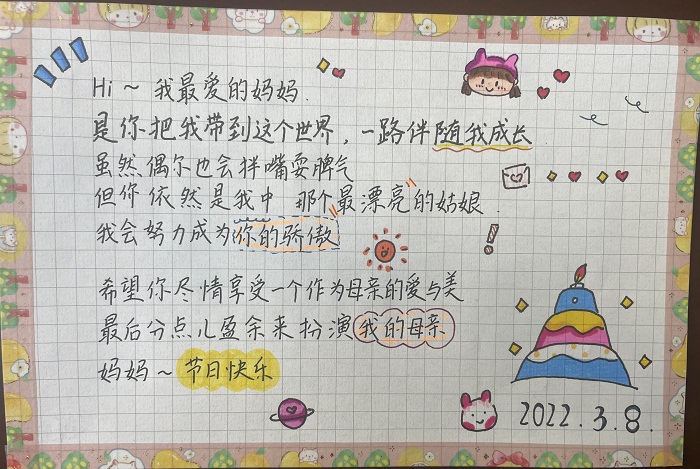 Hi ~ 我最爱的妈妈.
是你把我带到这个世界,一路伴随我成长
虽然偶尔也会拌嘴耍脾气
但你依然是我中 那个"最漂亮"的姑娘.
我会努力成为你的骄傲
希望你尽情享受一个作为母亲的爱与美
最后分点儿盈余来扮演我的母亲
妈妈~节日快乐
2022.3.8.